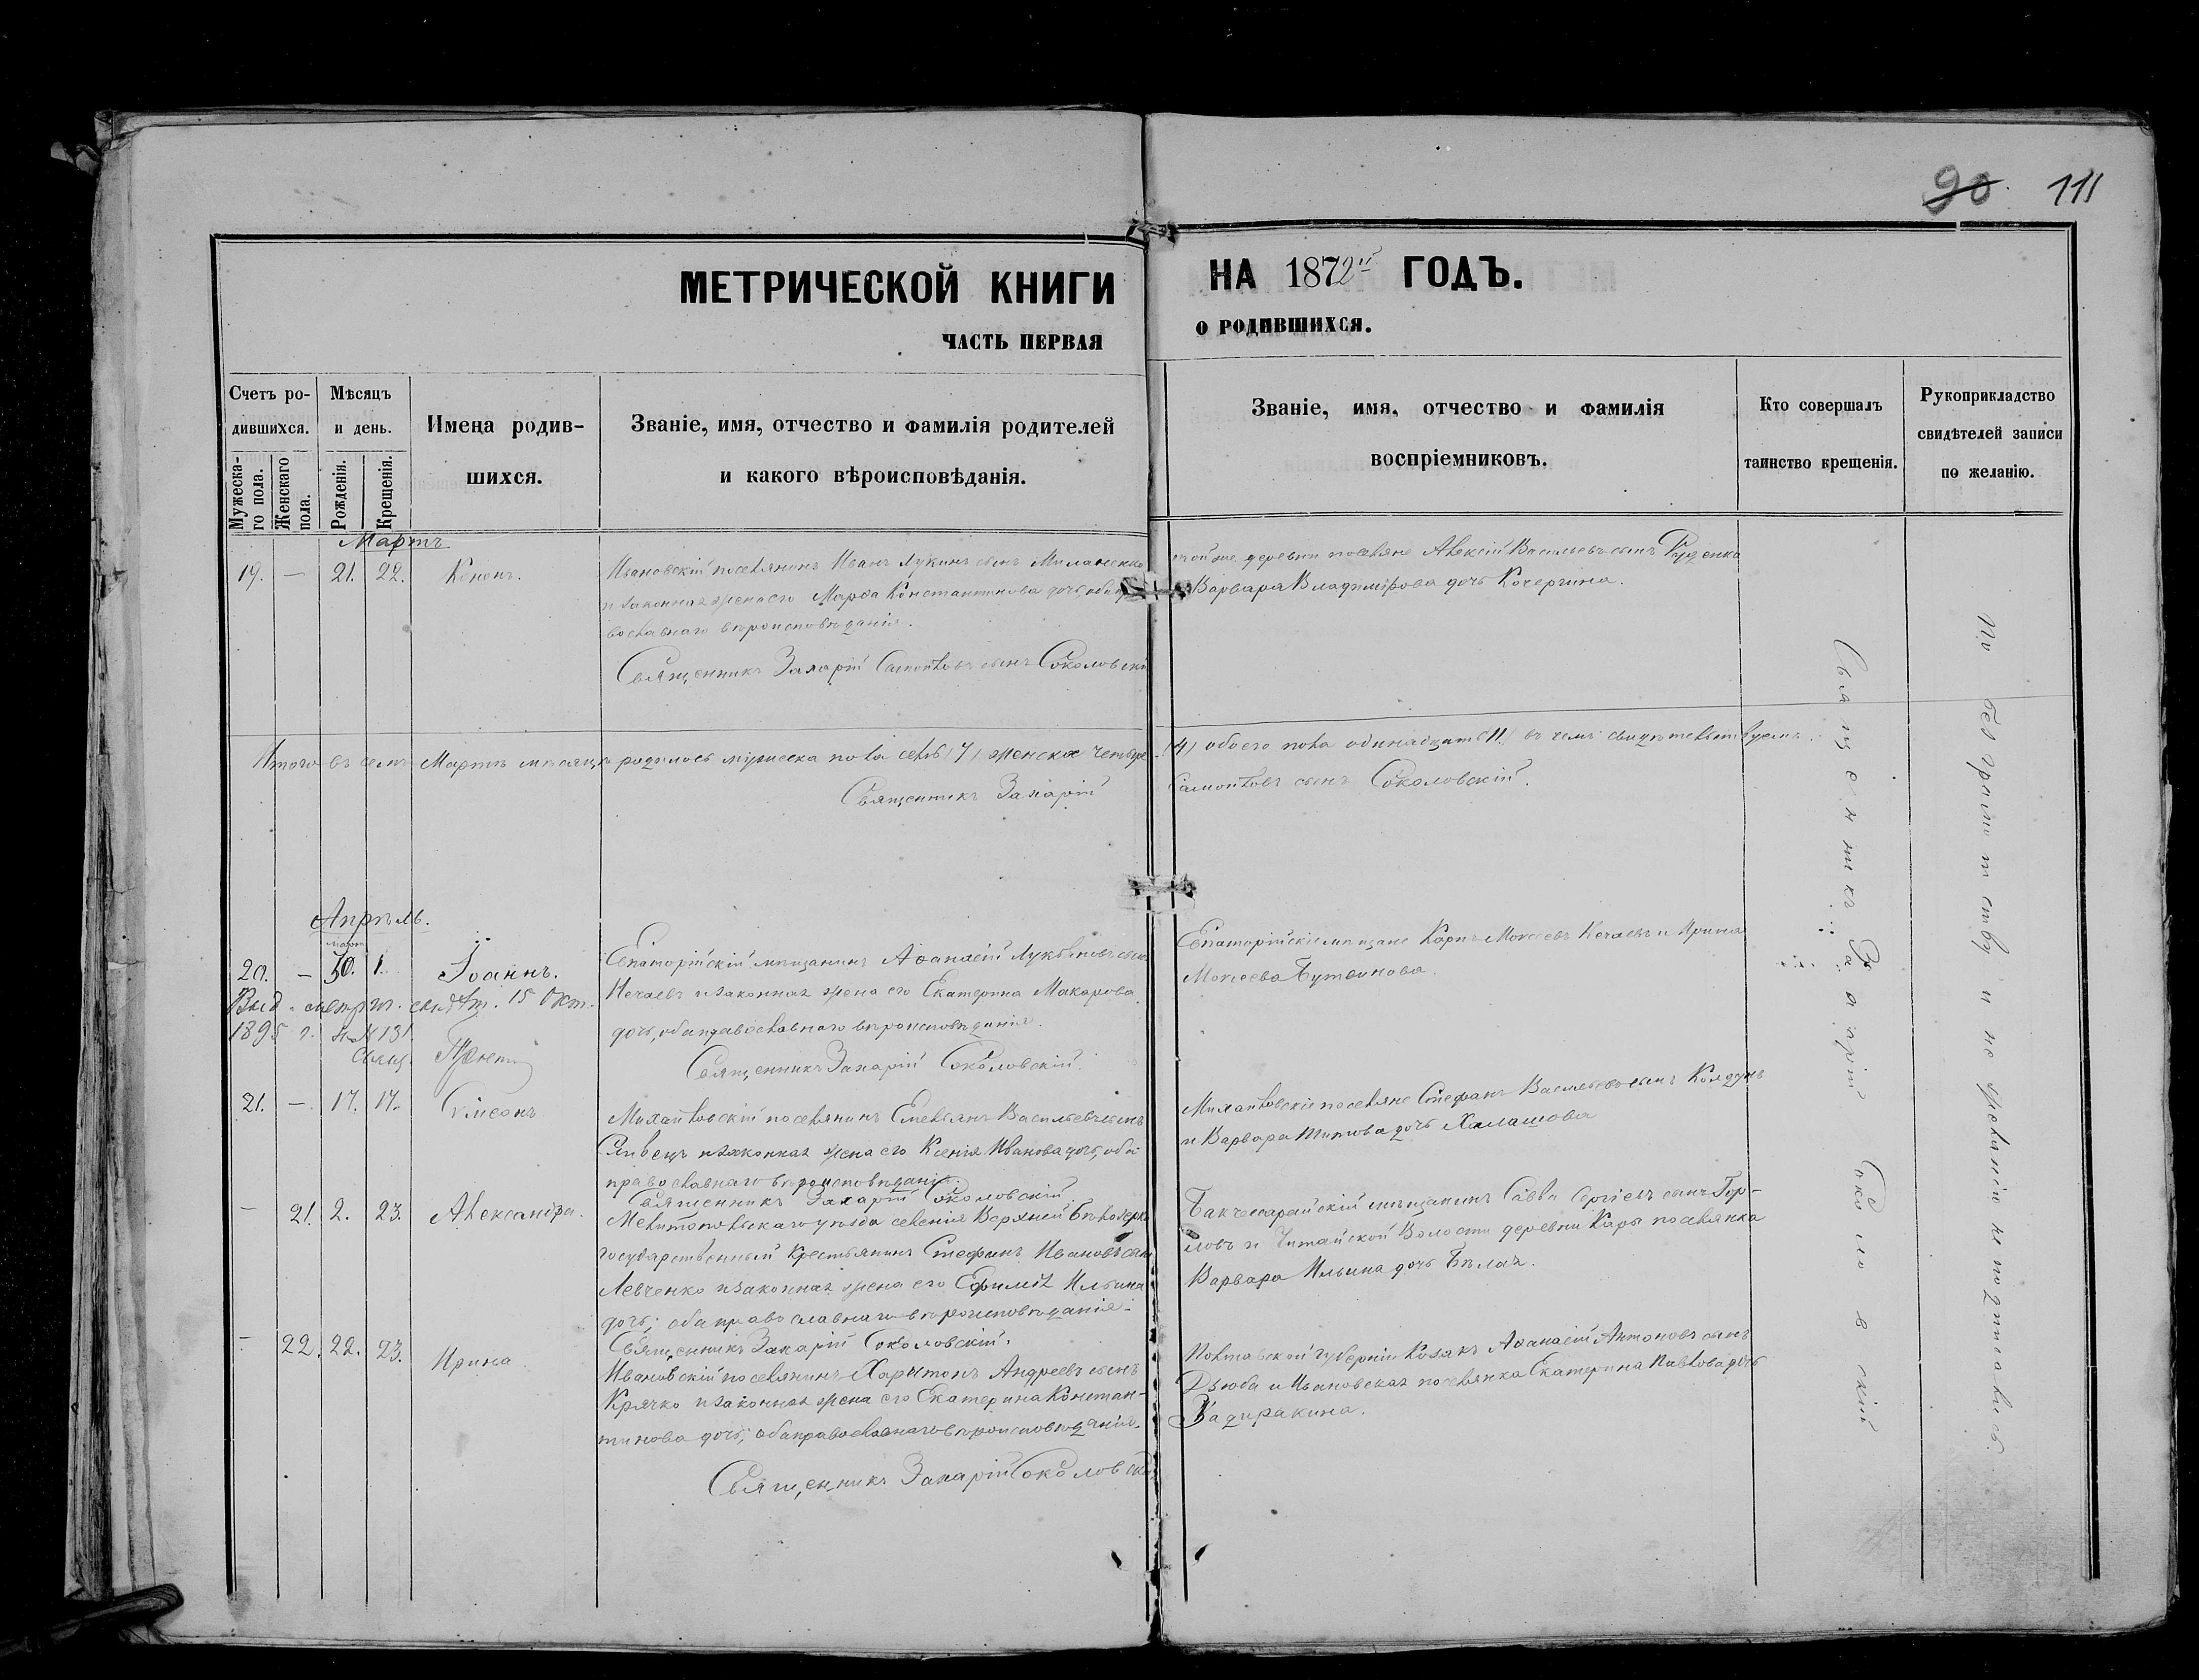 90. 111
МЕТРИЧЕСКОЙ КНИГИ НА 1872й ГОДЪ.
ЧАСТЬ ПЕРВАЯ О РОДИВШИХСЯ.
Счетъ ро-
дившихся.
Мужеска-
го пола.
Женскаго
пола.
Мѣсяцъ
и день.
Рожденія.
Крещенія.
Имена родив-
шихся.
Званіе, имя, отчество и фамилія родителей
и какого вѣроисповѣданія.
Званіе, имя, отчество и фамилія
воспріемниковъ.
Кто совершалъ
таинство крещенія.
Рукоприкладство
свидѣтелей записи
по желанію.
Мартъ
19. — 21. 22. Кононъ.
Ивановскій поселянинъ Иванъ Лукинъ сынъ Миланенко
и законная жена его Марѳа Константинова дочь, оба пра
вославнаго вѣроисповѣданія.
Священникъ Захарій Самойловъ сынъ Соколовскій
той же деревни поселяне Алексій Васильевъ сынъ Руденко
Варвара Владимірова дочь Кочергина.
Итого въ семъ Мартѣ мѣсяцѣ родилось мужеска пола семь (7) женска четыре
(4) обоего пола одинадцать 11. въ чемъ свидѣтельствуемъ.
Священникъ Захарій
Самойловъ сынъ Соколовскій.
Апрѣль.
марта
20. — 30. 1. Іоаннъ.
Выд. метр. свидѣт. 15 Окт.
1895 г. за № 131
Свящ.
Евпаторійскій мѣщанинъ Аѳанасій Лукьяновъ сынъ
Нечаевъ и законная жена его Екатерина Макарова
дочь, оба православнаго вѣроисповѣданія.
Священникъ Захарій Соколовскій.
Евпаторійскіе мѣщане Карпъ Моисеевъ Нечаевъ и Ирина
Моисеева
21. — 17. 17. Сѵмеонъ
Михайловскій поселянинъ Емельянъ Васильевъ сынъ
Сливецъ и законная жена его Ксенія Иванова дочь, оба
православнаго вѣроисповѣданія.
Священникъ Захарій Соколовскій
Михайловскіе поселяне Стефанъ Васильевъ сынъ Колдунъ
и Варвара Титова дочь Халашова
— 21. 2. 23. Александра.
Мелитопольскаго уѣзда селенія Верхней Бѣлозерки
государственный крестьянинъ Стефанъ Ивановъ сынъ
Левченко и законная жена его Ефимія Ильина
дочь; оба православнаго вѣроисповѣданія.
Священникъ Захарій Соколовскій.
Бакчесарайскій мѣщанинъ Савва Сергіевъ сынъ Гор-
ловъ и Читайской Волости деревни Кары поселянка
Варвара Ильина дочь Бѣлая.
— 22. 22. 23. Ирина
Ивановскій поселянинъ Харитонъ Андреевъ сынъ
Крячко и законная жена его Екатерина Констан-
тинова дочь; оба православнаго вѣроисповѣданія.
Священникъ Захарій Соколовскій
Полтавской губерніи Козакъ Аѳанасій Антоновъ сынъ
Дзюба и Ивановская поселянка Екатерина Павлова дочь
Задиракина.
Священникъ Захарій Соколовскій
По безграмотству и не желанію не подписались